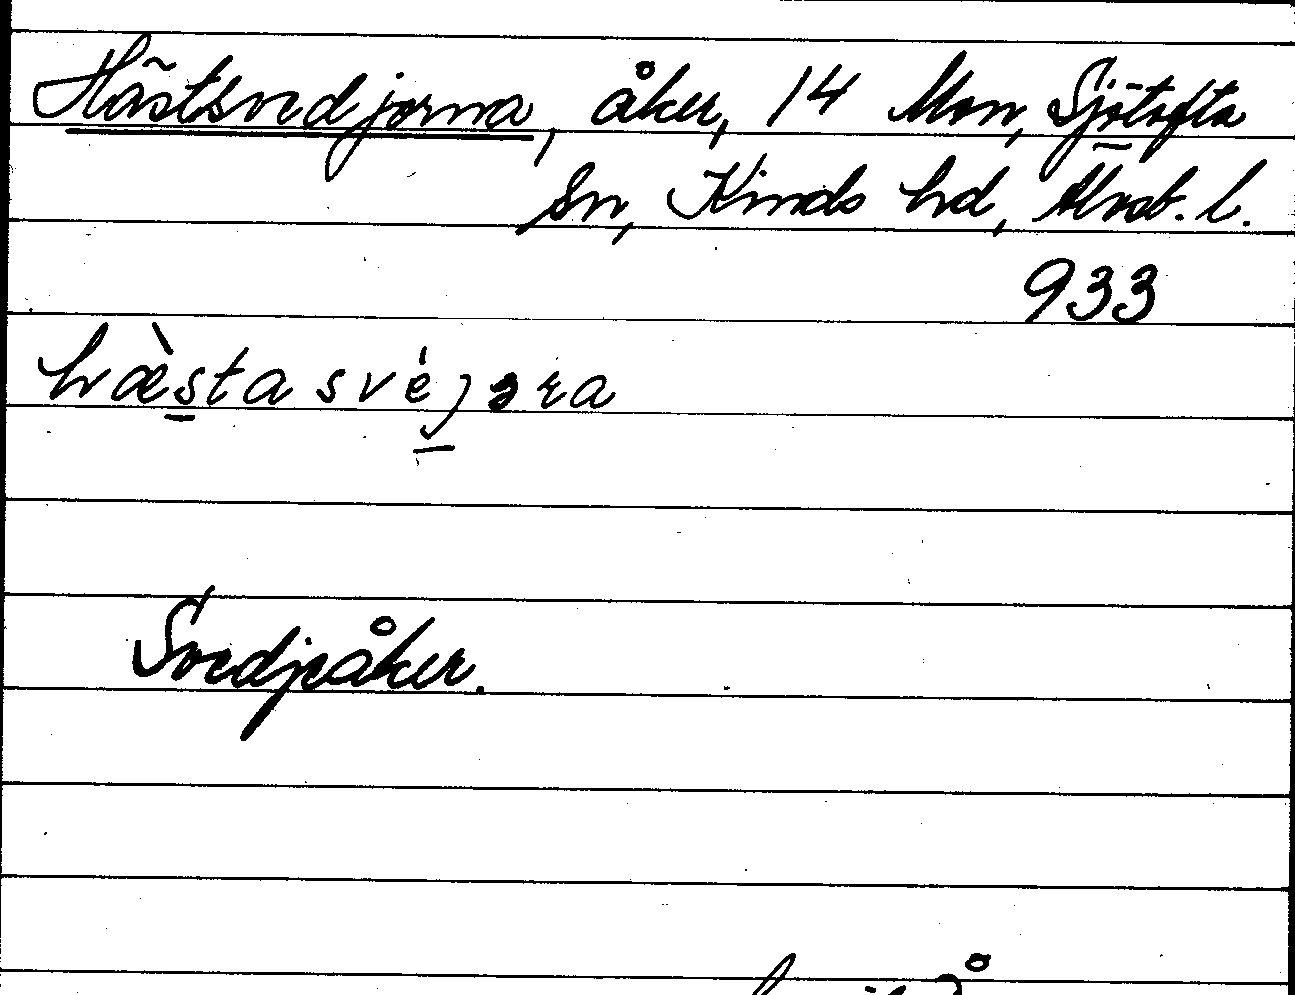 Hästsvedjorna, åker, 14 Mon, Sjötofta
sn, Kinds hd, Älvsb. l.
933
hæ̀stasvéjəra
Svedjeåker.